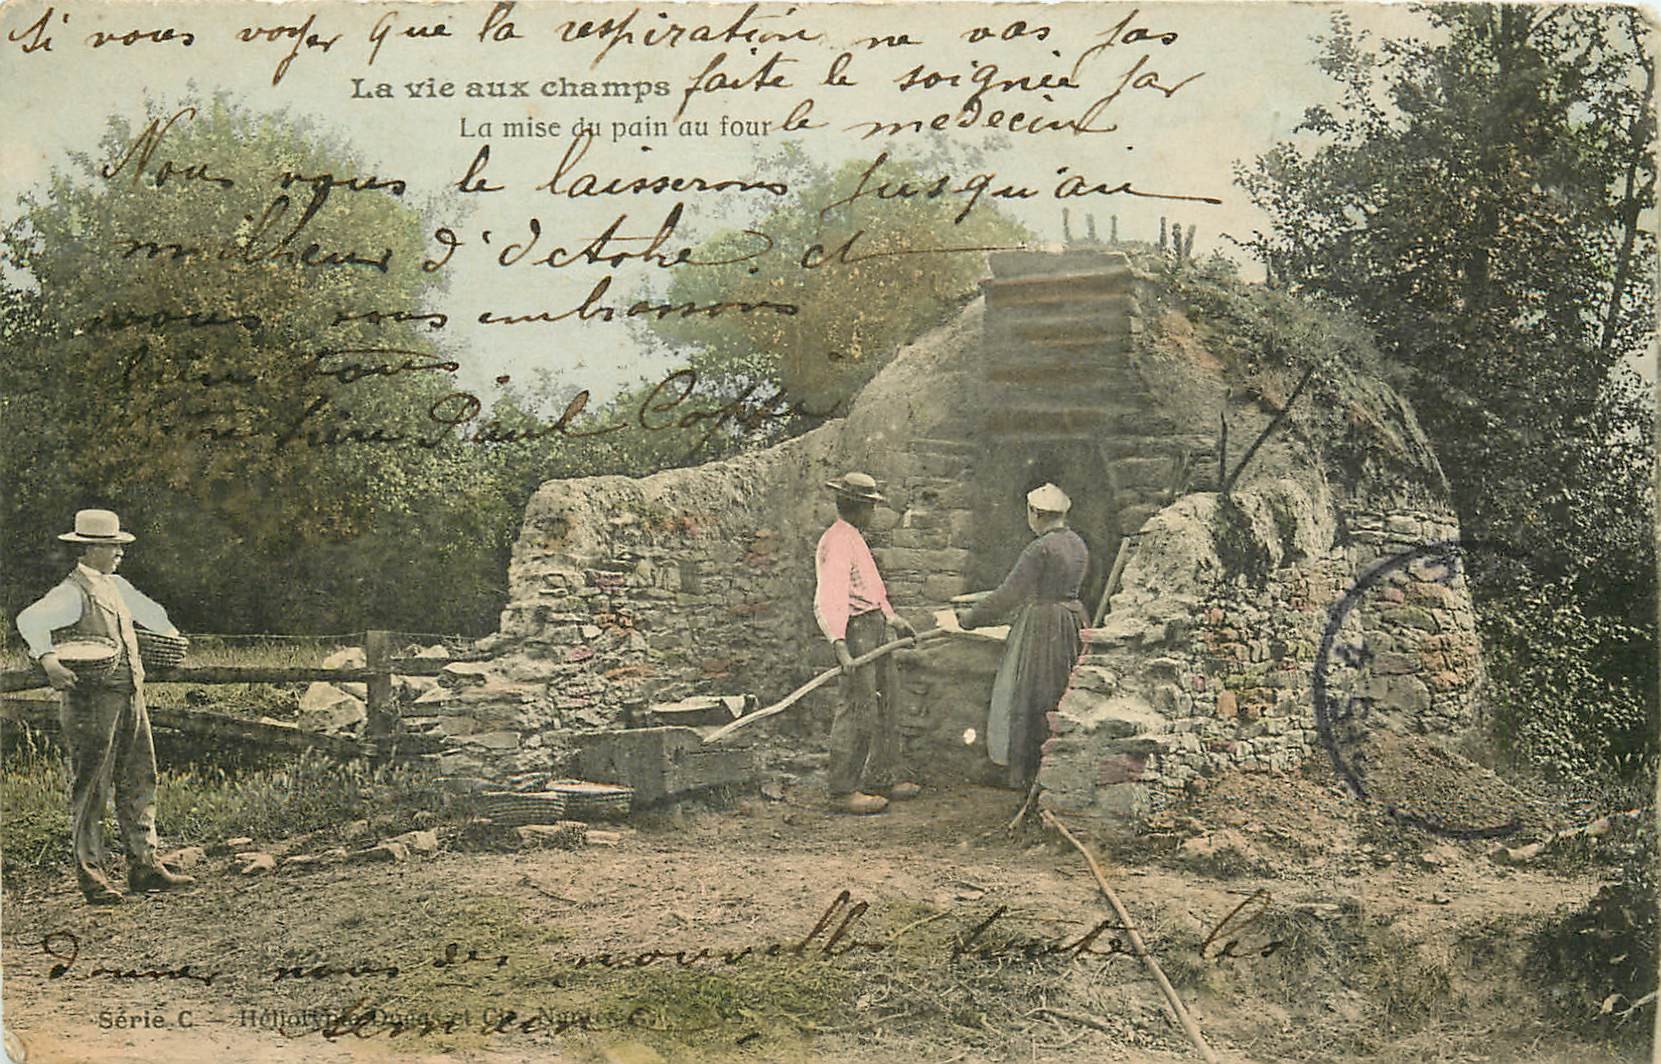 Si vous voyer que la respiration ne vas pas
La vie aux champs
faite le soignée par
La mise du pain au four
le medecin
Nous vous le laisserons jusqu'au
milheur d'Octobre. et
nous vous embrassons
bien tous
Paul
donner nous des nouvelles toute les
Série C - Héliotypie Dugas et Cie Nantes